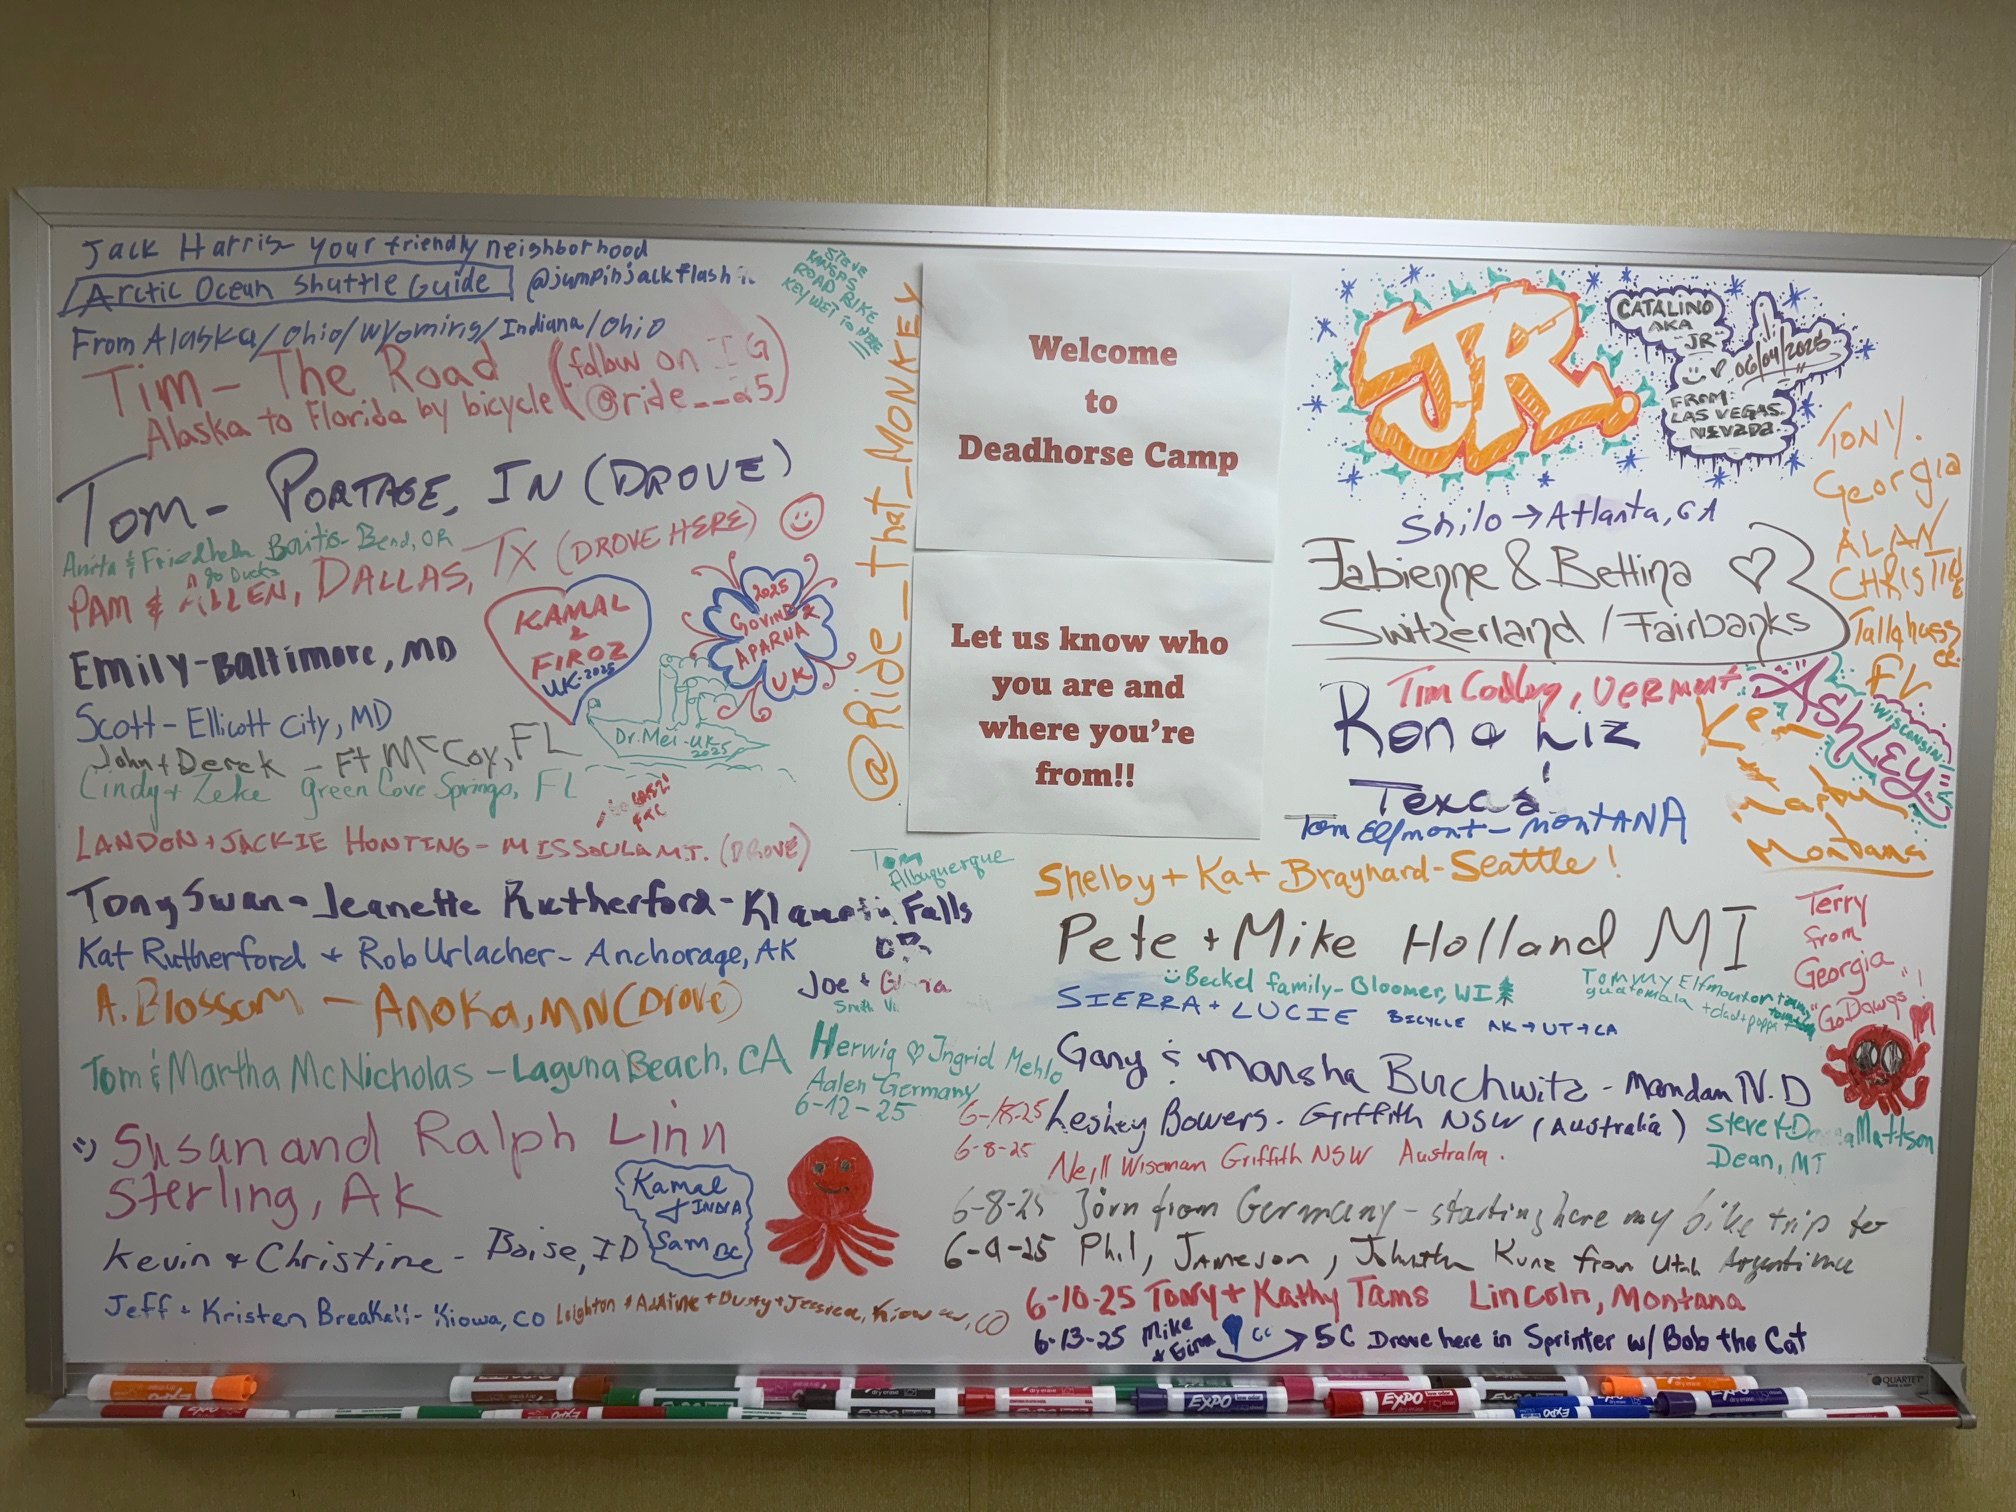 Jack Harris your friendly neighborhood
Arctic Ocean Shuttle Guide @jumpinjackflash
From Alaska/Ohio/Wyoming/Indiana/Ohio
Tim - The Road (follow on IG
Alaska to Florida by bicycle @ride__a5)
Tom - PORTAGE, IN (DROVE)
Anita & Friedhelm Bend, OR
go Ducks
PAM & ALLEN, DALLAS, TX (DROVE HERE)
Emily - Baltimore, MD
Scott - Ellicott City, MD
John + Derek - Ft McCoy, FL
Cindy + Zeke Green Cove Springs, FL
KAMAL
&
FIROZ
UK-2025
2025
GOVIND &
APARNA
UK
Dr. Mei-UK
2025
LANDON + JACKIE HONTING - MISSOULA MT. (DROVE)
Tony Swan - Jeanette Rutherford - Klamath Falls
OR
Kat Rutherford + Rob Urlacher - Anchorage, AK
A. Blossom - Anoka, MN (Drove)
Tom & Martha McNicholas - Laguna Beach, CA
:) Susan and Ralph Linn
Sterling, AK
Kamal
INDIA
Sam BC
Kevin + Christine - Boise, ID
Jeff + Kristen Breakall - Kiowa, CO
Leighton + Ashline + Dusty + Jessica, Kiowa, CO
STEVE
KANSAS
ROAD BIKE
KEY WEST TO
@Ride_That_MONKEY
Tom
Albuquerque
Joe +
Smith
Herwig ♡ Ingrid Mehlo
Aalen-Germany
6-12-25
Welcome
to
Deadhorse Camp
Let us know who
you are and
where you're
from!!
JR.
CATALINO
AKA
JR
06/04/2025
FROM:
LAS VEGAS
NEVADA
Shilo → Atlanta, GA
Fabienne & Bettina ♡
Switzerland / Fairbanks
TONY.
Georgia
ALAN
CHRISTINE
Tallahassee
FL
Tim Codling, VERMONT
Ron & Liz
Texas
Ken
+
Marty
Montana
ASHLEY
WISCONSIN
Tom Elfmont - MONTANA
Shelby + Kat Braynard - Seattle!
Pete + Mike Holland MI
Beckel family - Bloomer, WI
Tommy Elfmont
guatemala + dad + poppa
SIERRA + LUCIE BICYCLE AK → UT → CA
Terry
from
Georgia
"Go Dawgs"!
Gary & Marsha Buchwitz - Mandan N.D
6-8-25 Leshey Bowers. Griffith NSW (Australia)
6-8-25 Neill Wiseman Griffith NSW Australia.
Steve + Mattson
Dean, MT
6-8-25 Jörn from Germany - starting here my bike trip to
Argentina
6-9-25 Phil, Jameson, Kunz from Utah
6-10-25 Tony + Kathy Tams Lincoln, Montana
6-13-25 Mike + Gina → SC Drove here in Sprinter w/ Bob the Cat
QUARTET
EXPO
EXPO
EXPO
EXPO